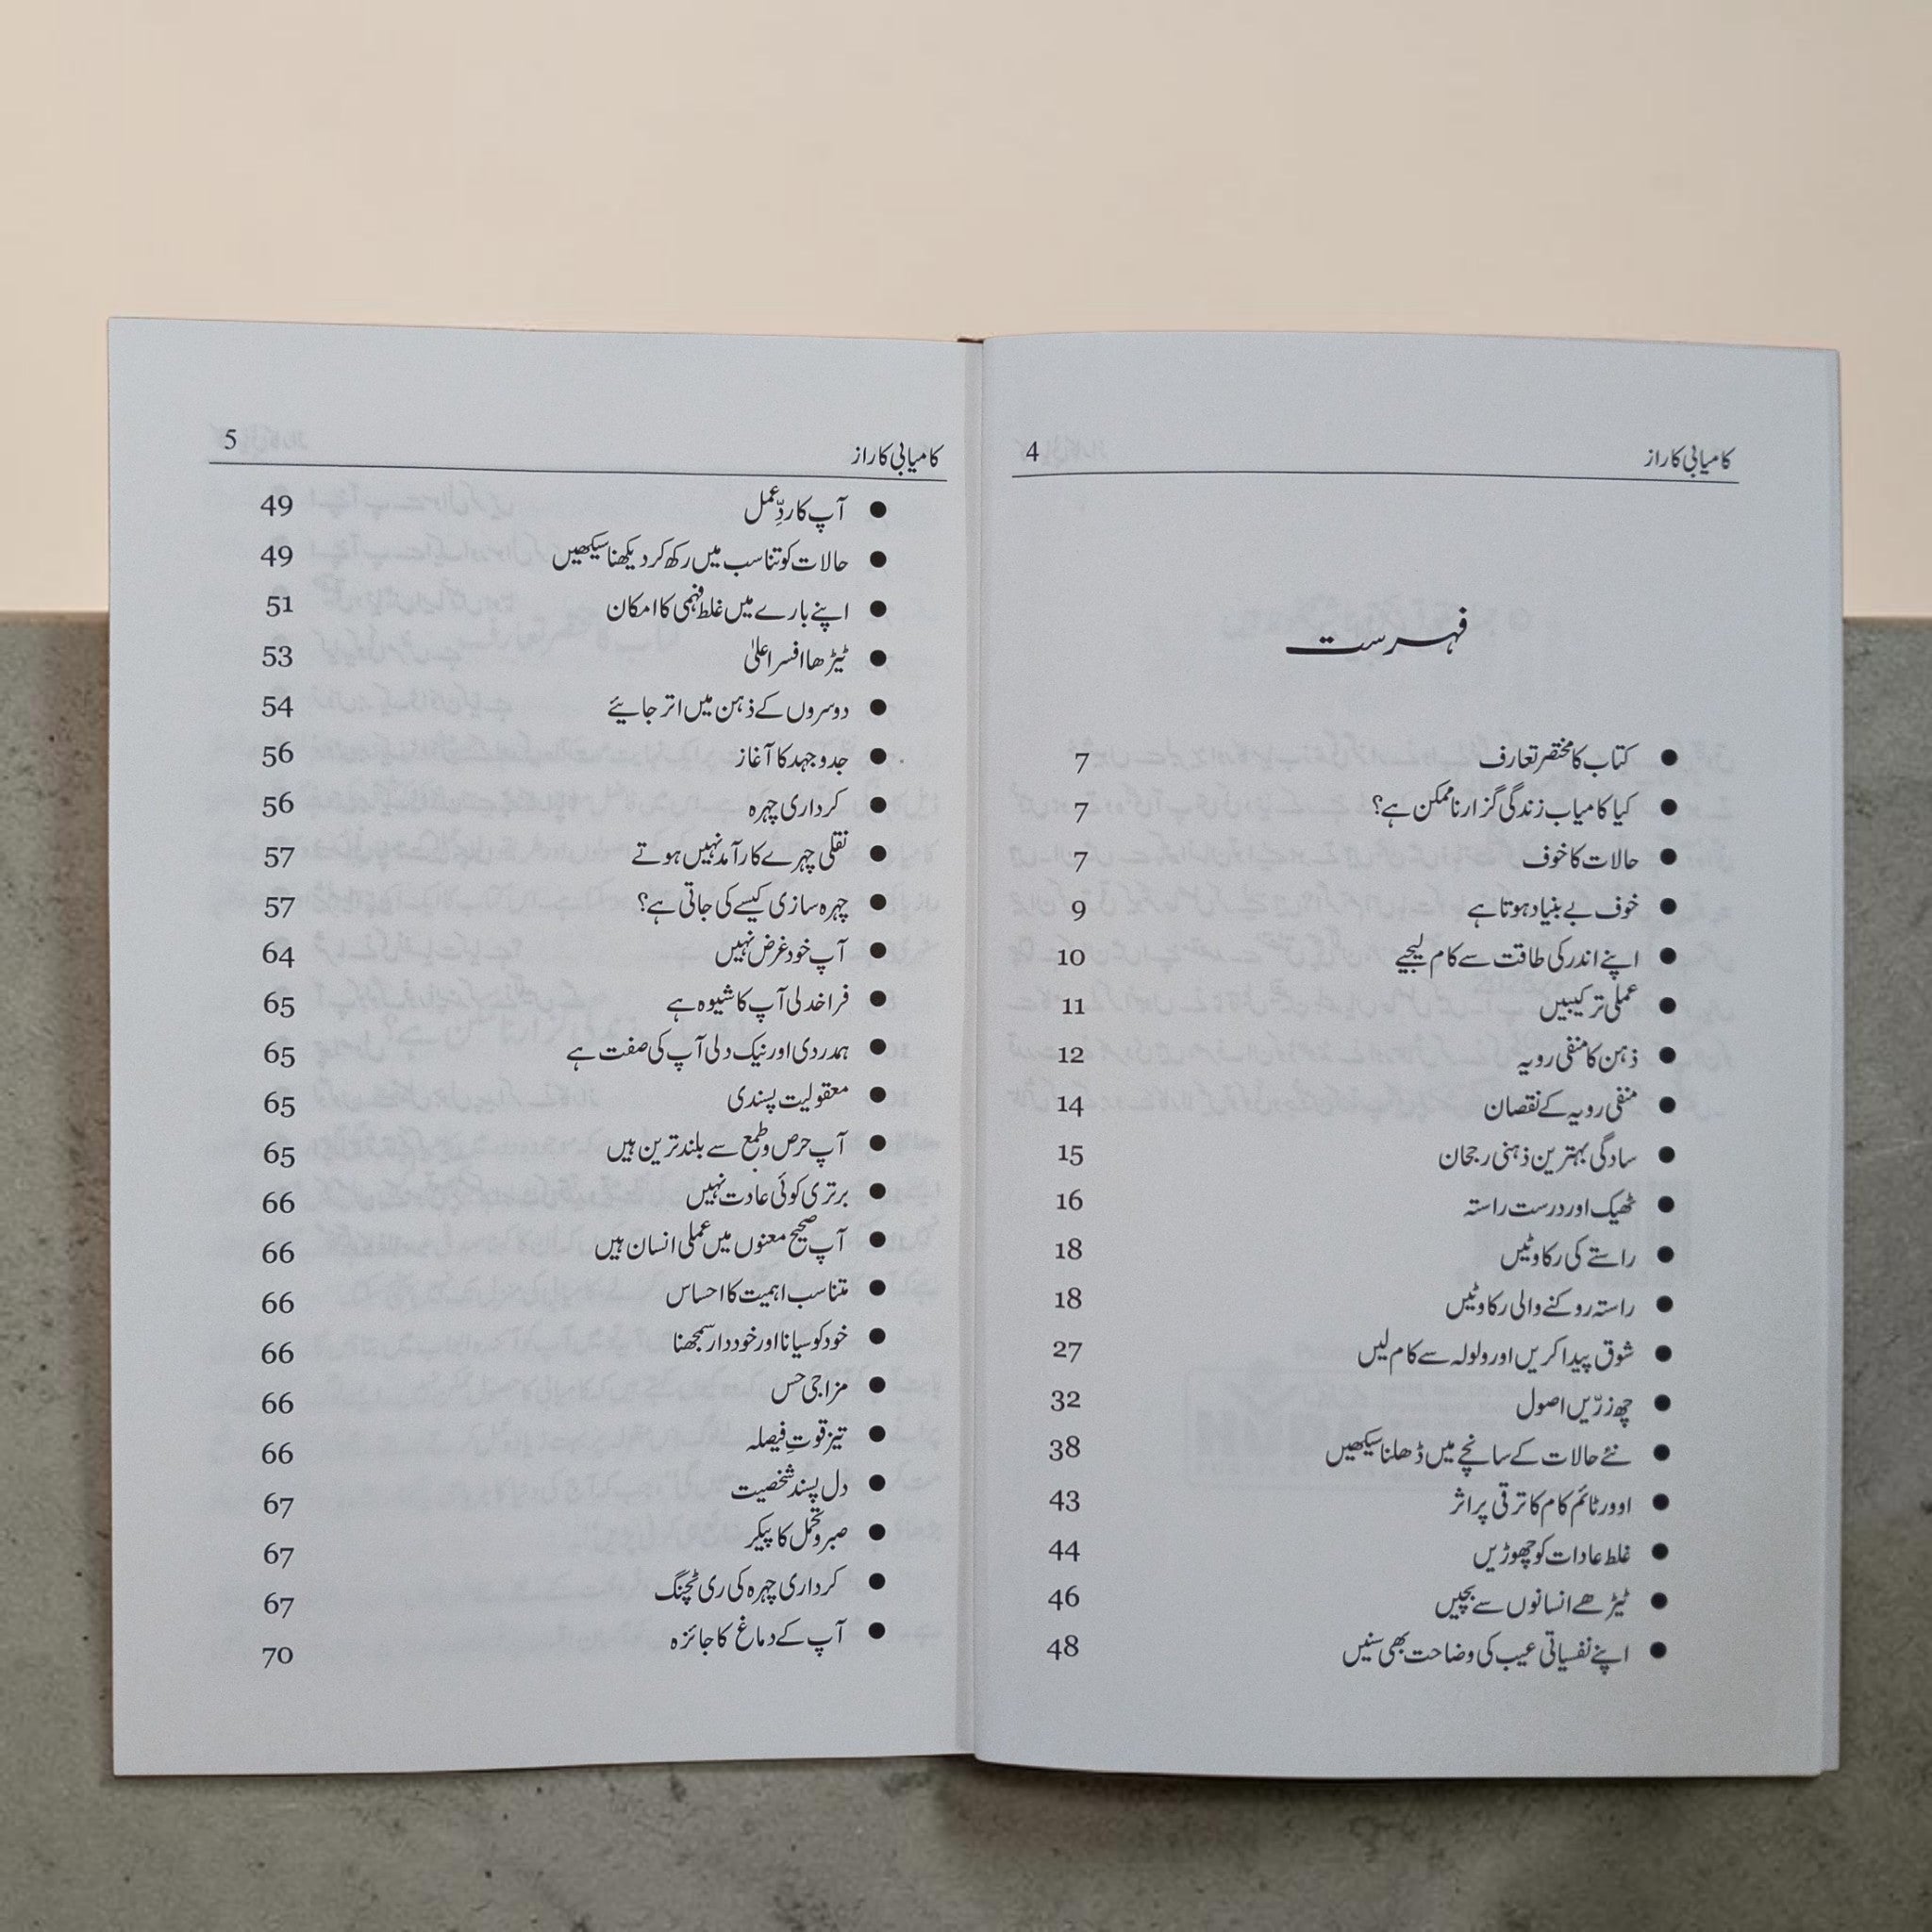 کامیابی کا راز 4
فہرست
● کتاب کا مختصر تعارف 7
● کیا کامیاب زندگی گزارنا ممکن ہے؟ 7
● حالات کا خوف 7
● خوف بے بنیاد ہوتا ہے 9
● اپنے اندر کی طاقت سے کام لیجیے 10
● عملی ترکیبیں 11
● ذہن کا منفی رویہ 12
● منفی رویہ کے نقصان 14
● سادگی بہترین ذہنی رجحان 15
● ٹھیک اور درست راستہ 16
● راستے کی رکاوٹیں 18
● راستہ روکنے والی رکاوٹیں 18
● شوق پیدا کریں اور ولولہ سے کام لیں 27
● چھ زرّیں اصول 32
● نئے حالات کے سانچے میں ڈھلنا سیکھیں 38
● اوور ٹائم کام کا ترقی پر اثر 43
● غلط عادات کو چھوڑیں 44
● ٹیڑھے انسانوں سے بچیں 46
● اپنے نفسیاتی عیب کی وضاحت بھی سنیں 48
کامیابی کا راز 5
● آپ کا ردِّ عمل 49
● حالات کو تناسب میں رکھ کر دیکھنا سیکھیں 49
● اپنے بارے میں غلط فہمی کا امکان 51
● ٹیڑھا افسر اعلیٰ 53
● دوسروں کے ذہن میں اتر جایئے 54
● جدوجہد کا آغاز 56
● کرداری چہرہ 56
● نقلی چہرے کارآمد نہیں ہوتے 57
● چہرہ سازی کیسے کی جاتی ہے؟ 57
● آپ خود غرض نہیں 64
● فراخدلی آپ کا شیوہ ہے 65
● ہمدردی اور نیک دلی آپ کی صفت ہے 65
● معقولیت پسندی 65
● آپ حرص و طمع سے بلند ترین ہیں 65
● برتری کوئی عادت نہیں 66
● آپ صحیح معنوں میں عملی انسان ہیں 66
● متناسب اہمیت کا احساس 66
● خود کو سیانا اور خوددار سمجھنا 66
● مزاجی حس 66
● تیز قوتِ فیصلہ 66
● دل پسند شخصیت 67
● صبر و تحمل کا پیکر 67
● کرداری چہرہ کی ری ٹچنگ 67
● آپ کے دماغ کا جائزہ 70